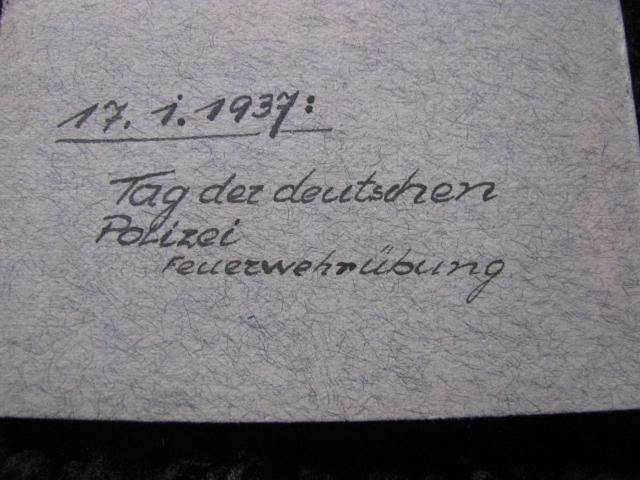 17. i. 1937:
Tag der deutschen
Polizei
Feuerwehrübung